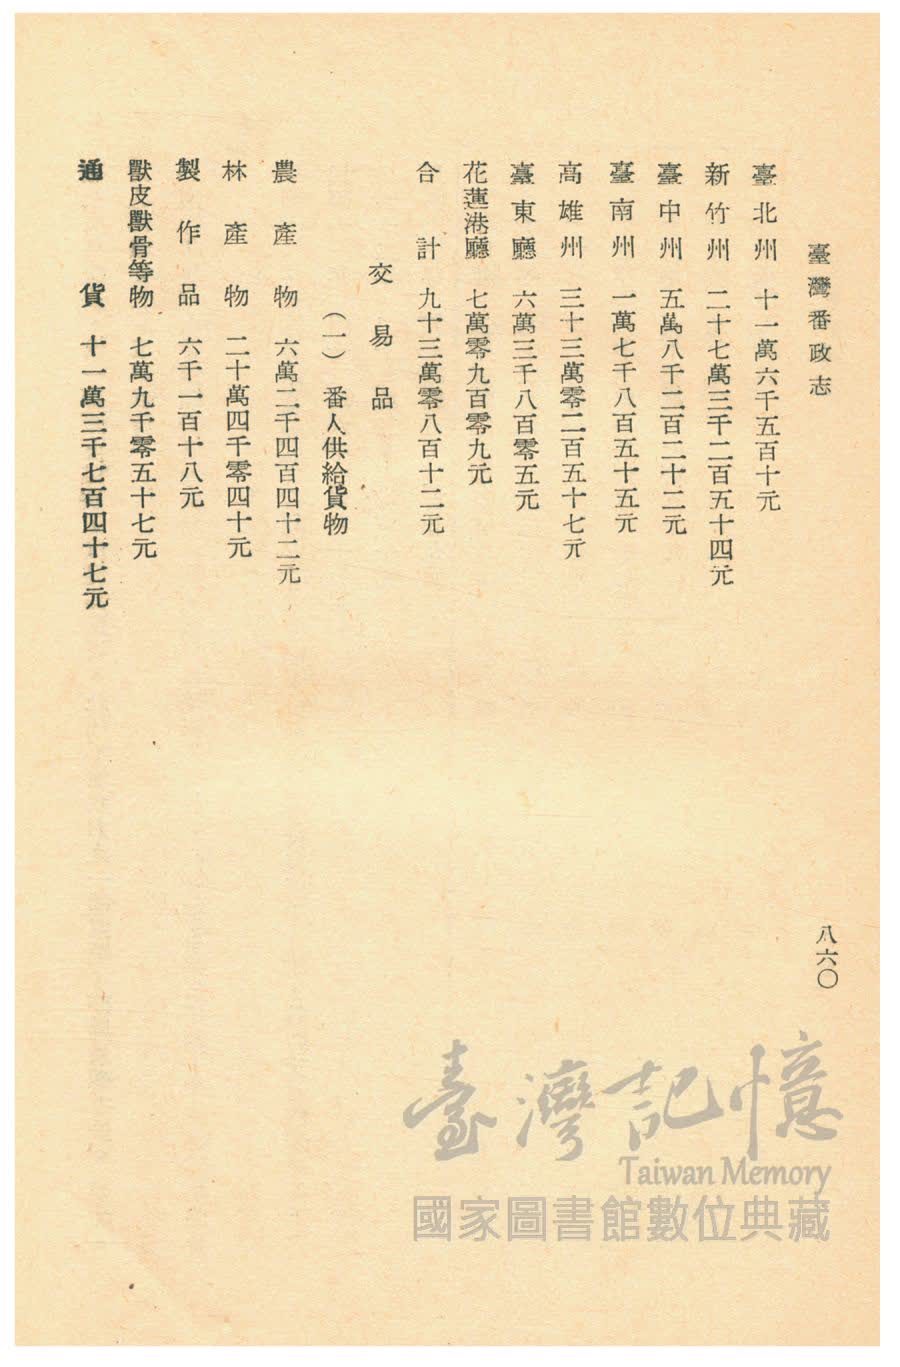 臺灣番政志
八六〇
臺北州 十一萬六千五百十元
新竹州 二十七萬三千二百五十四元
臺中州 五萬八千二百二十二元
臺南州 一萬七千八百五十五元
高雄州 三十三萬零二百五十七元
臺東廳 六萬三千八百零五元
花蓮港廳 七萬零九百零九元
合計 九十三萬零八百十二元
交易品
(一) 番人供給貨物
農產物 六萬二千四百四十二元
林產物 二十萬四千零四十元
製作品 六千一百十八元
獸皮獸骨等物 七萬九千零五十七元
通貨 十一萬三千七百四十七元
臺灣記憶
Taiwan Memory
國家圖書館數位典藏